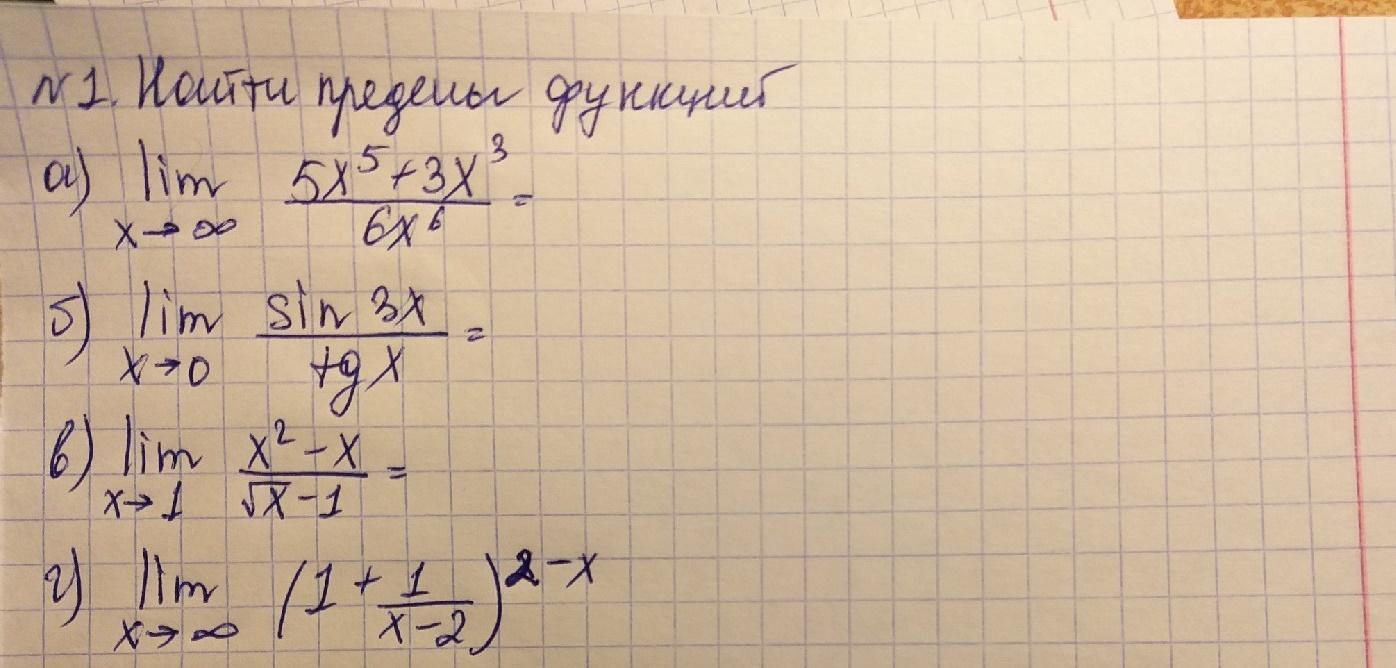 №1. Найти пределы функций
а) lim x→∞ (5x⁵+3x³)/(6x⁶) =
б) lim x→0 (sin 3x)/(tg x) =
в) lim x→1 (x²-x)/(√x-1) =
г) lim x→∞ (1+1/(x-2))^(2-x)